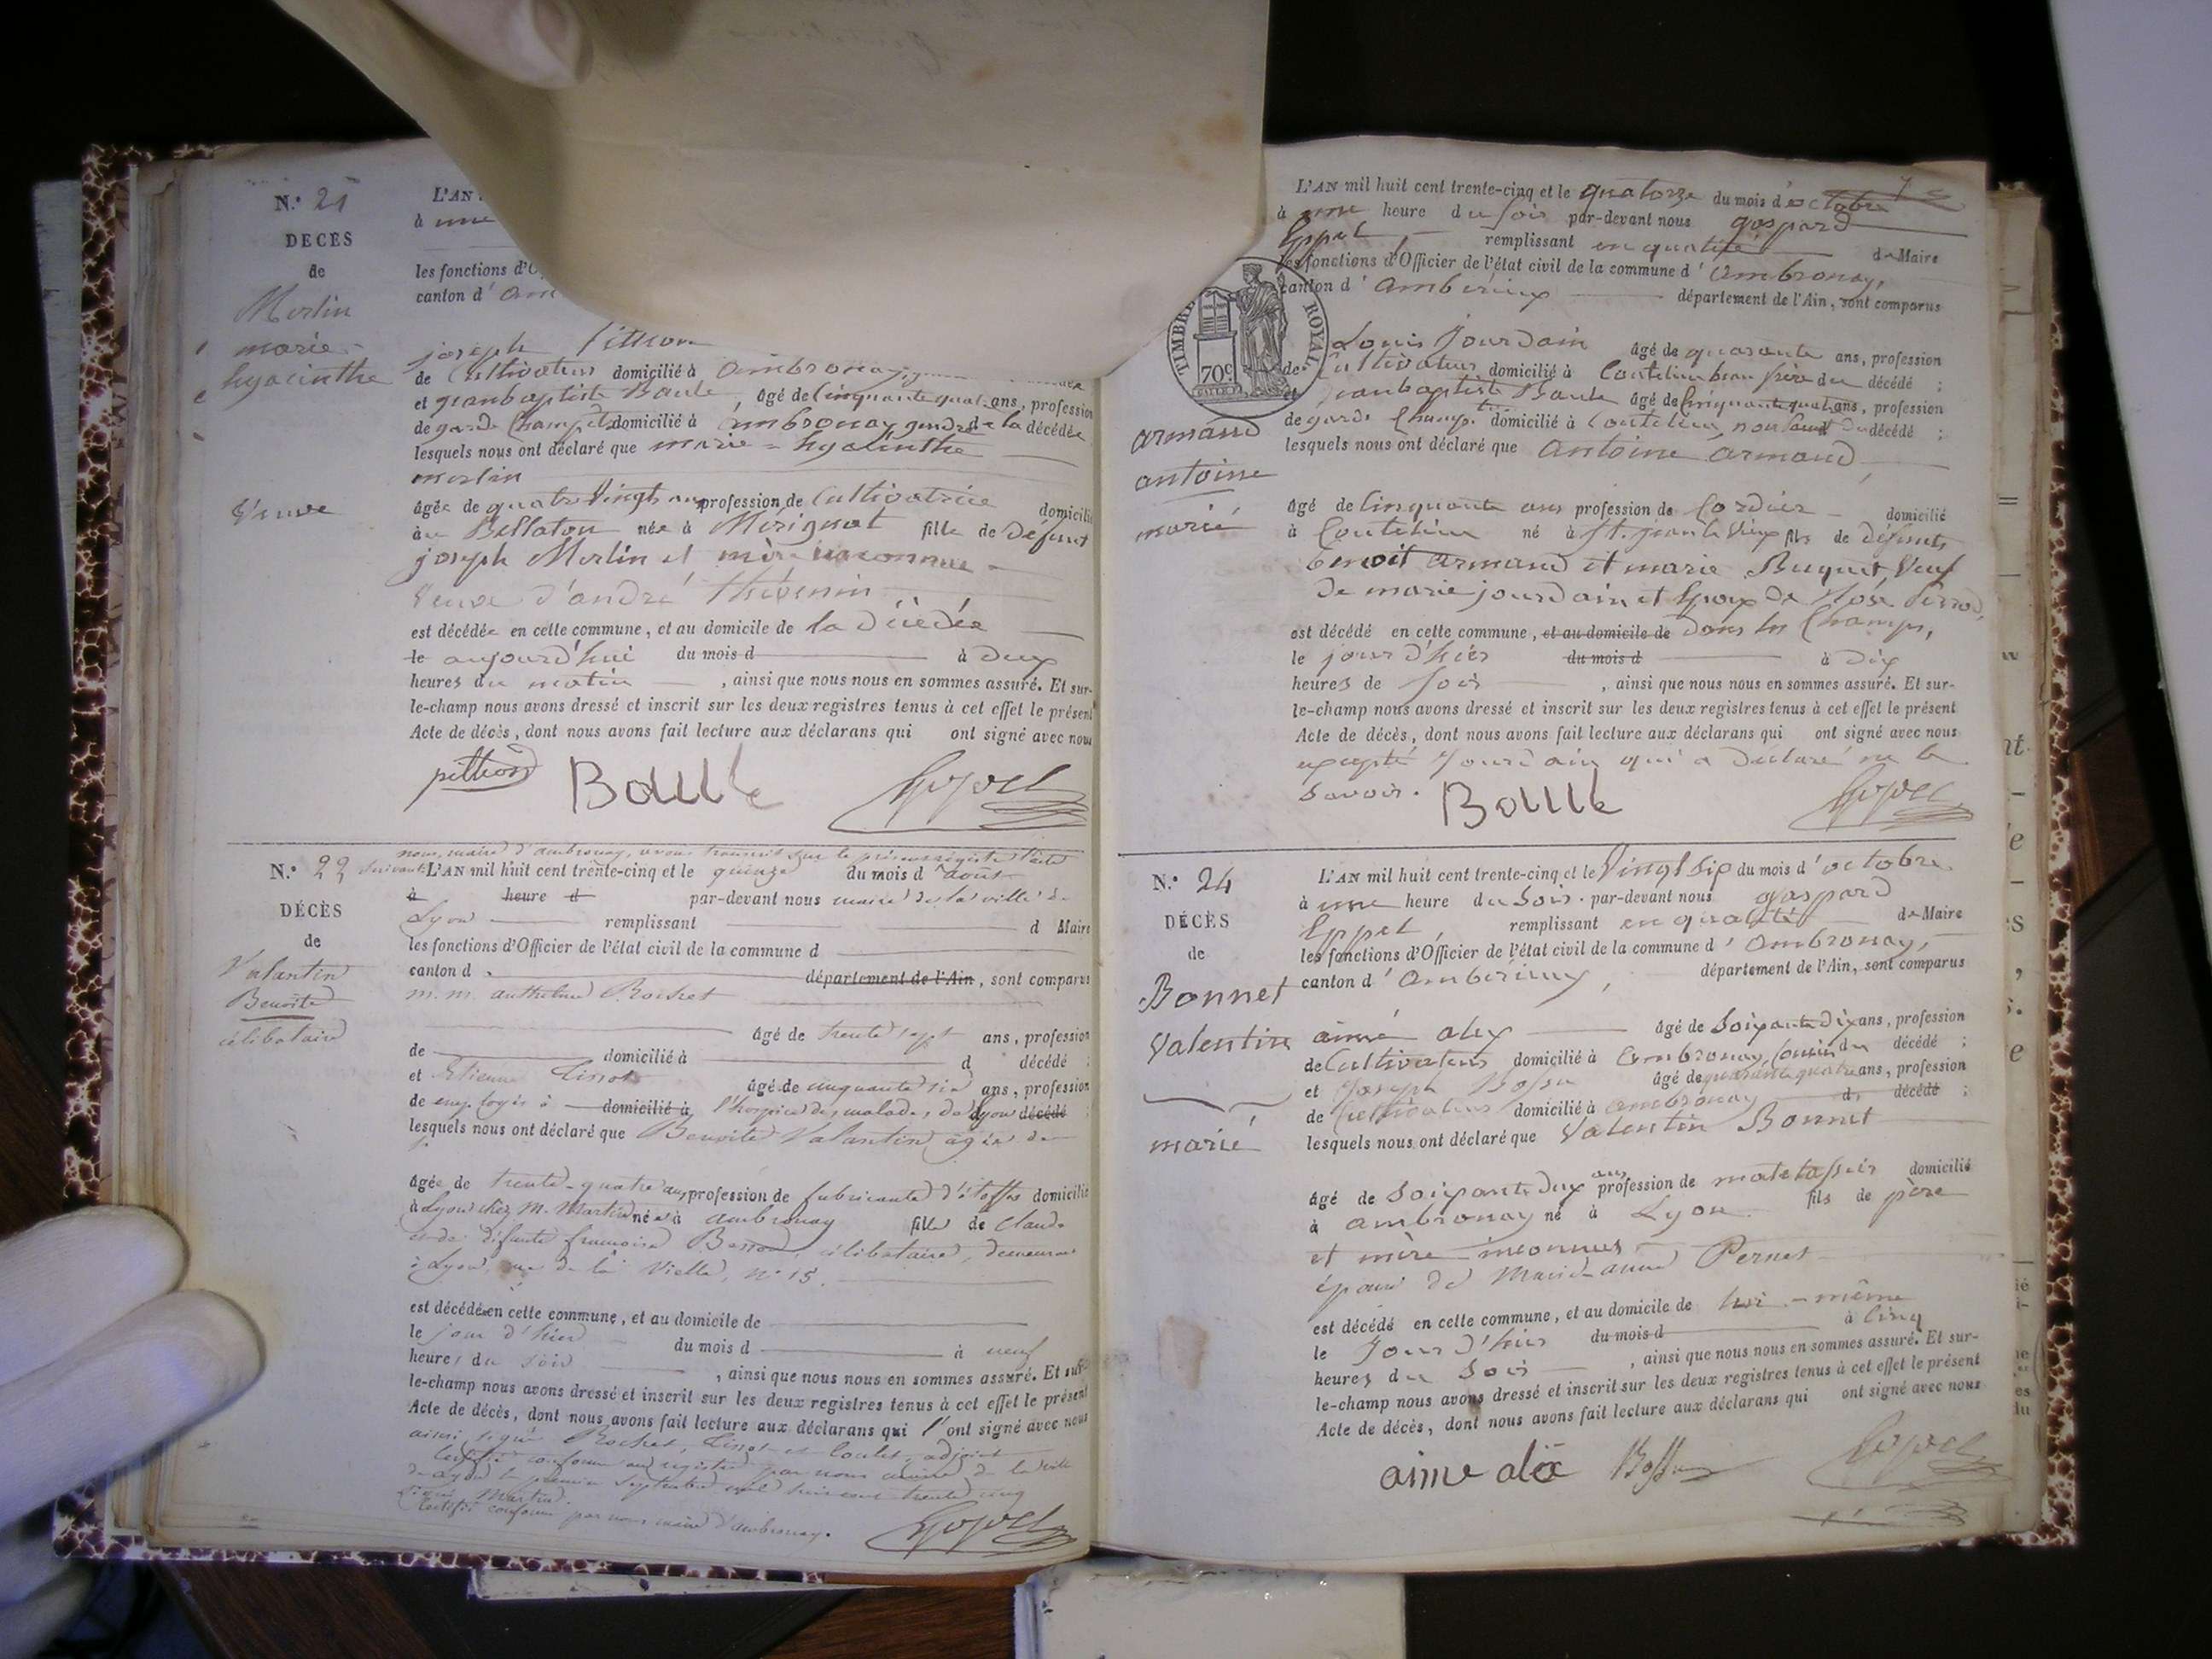 N.° 21
DÉCÈS
de
Merlin
marie
hyacinthe
Veuve
L'AN
à une
les fonctions d'O
canton d'am
joseph
de Cultivateur domicilié à ambronay
et jeanbaptiste Baule, âgé de Cinquante quat. ans, profession
de garde Champêt. domicilié à ambronay gendre de la décédée
lesquels nous ont déclaré que marie = hyacinthe
merlin
âgée de quatre Vingts ans profession de Cultivatrice domicilié
au Bellaton née à Mérignat fille de Défunt
joseph Merlin et mère inconnue
Veuve d'andré thévenin
est décédée en cette commune, et au domicile de la décédée
le aujourd'hui du mois d à deux
heures du matin, ainsi que nous nous en sommes assuré. Et sur-
le-champ nous avons dressé et inscrit sur les deux registres tenus à cet effet le présent
Acte de décès, dont nous avons fait lecture aux déclarans qui ont signé avec nous
pithiod Baule
N.° 22
DÉCÈS
de
Valantin
Benoîte
célibataire
nous, maire d'ambronay, avons transcrit sur le présent registre l'acte
suivant L'AN mil huit cent trente-cinq et le quinze du mois d'août
à heure d par-devant nous maire de la ville de
Lyon remplissant d Maire
les fonctions d'Officier de l'état civil de la commune d
canton d département de l'Ain, sont comparus
m. m. anthelme Rochet
âgé de trente sept ans, profession
de domicilié à d décédé ;
et Etienne Tissot âgé de cinquante six ans, profession
de employés à domicilié à l'hospice des malades de lyon décédé
lesquels nous ont déclaré que Benoîte Valantin âgée de
âgée de trente-quatre ans profession de fabricante d'étoffes domicilié
à Lyon chez M. Martin née à ambronay fille de Claude
et de défunte françoise célibataire, demeurant
à Lyon, rue de la Vielle, n° 15.
est décédée en cette commune, et au domicile de
le jour d'hier du mois d à neuf
heures du soir, ainsi que nous nous en sommes assuré. Et sur-
le-champ nous avons dressé et inscrit sur les deux registres tenus à cet effet le présent
Acte de décès, dont nous avons fait lecture aux déclarans qui l'ont signé avec nous
ainsi signé Rochet, Tissot et adjoint
Certifié conforme au registre par nous maire de la ville
de Lyon le premier septembre mil huit cent trente cinq
signé Martin.
Certifié conforme par nous maire d'ambronay.
TIMBRE ROYAL
70c
armand
antoine
marié
L'AN mil huit cent trente-cinq et le quatorze du mois d'octobre
à une heure du soir par-devant nous gaspard
Eppel, remplissant en qualité de Maire
les fonctions d'Officier de l'état civil de la commune d'ambronay,
canton d'amberieux département de l'Ain, sont comparus
Louis Jourdain âgé de quarante ans, profession
de Cultivateur domicilié à Coutelieu beau frère du décédé ;
jeanbaptiste Baule âgé de Cinquante quat. ans, profession
de garde Champ. domicilié à Coutelieu, non parent du décédé ;
lesquels nous ont déclaré que Antoine armand
âgé de Cinquante ans profession de Cordier domicilié
à Coutelieu né à St. jean le Vieux fils de défunts
benoit armand et marie Buquet Veuf
de marie jourdain et Epoux de Rose
est décédé en cette commune, et au domicile de dans les Champs,
le jour d'hier du mois d à dix
heures de soir, ainsi que nous nous en sommes assuré. Et sur-
le-champ nous avons dressé et inscrit sur les deux registres tenus à cet effet le présent
Acte de décès, dont nous avons fait lecture aux déclarans qui ont signé avec nous
excepté Jourdain qui a déclaré ne le
Savoir. Baule
N.° 24
DÉCÈS
de
Bonnet
Valentin
marié
L'AN mil huit cent trente-cinq et le Vingt six du mois d'octobre
à une heure du Soir par-devant nous gaspard
Eppel, remplissant en qualité de Maire
les fonctions d'Officier de l'état civil de la commune d'ambronay,
canton d'amberieux, département de l'Ain, sont comparus
aimé alex âgé de Soixante dix ans, profession
de Cultivateur domicilié à ambronay Cousin du décédé ;
et Joseph Bossu âgé de quarante quatre ans, profession
de Cultivateur domicilié à ambronay d décédé ;
lesquels nous ont déclaré que Valentin Bonnet
âgé de Soixante deux ans profession de matelassier domicilié
à ambronay né à Lyon fils de père
et mère inconnus
époux de Marie-anne Pernet
est décédé en cette commune, et au domicile de lui-même
le Jour d'hier du mois d à Cinq
heures du Soir, ainsi que nous nous en sommes assuré. Et sur-
le-champ nous avons dressé et inscrit sur les deux registres tenus à cet effet le présent
Acte de décès, dont nous avons fait lecture aux déclarans qui ont signé avec nous
aime alex Bossu